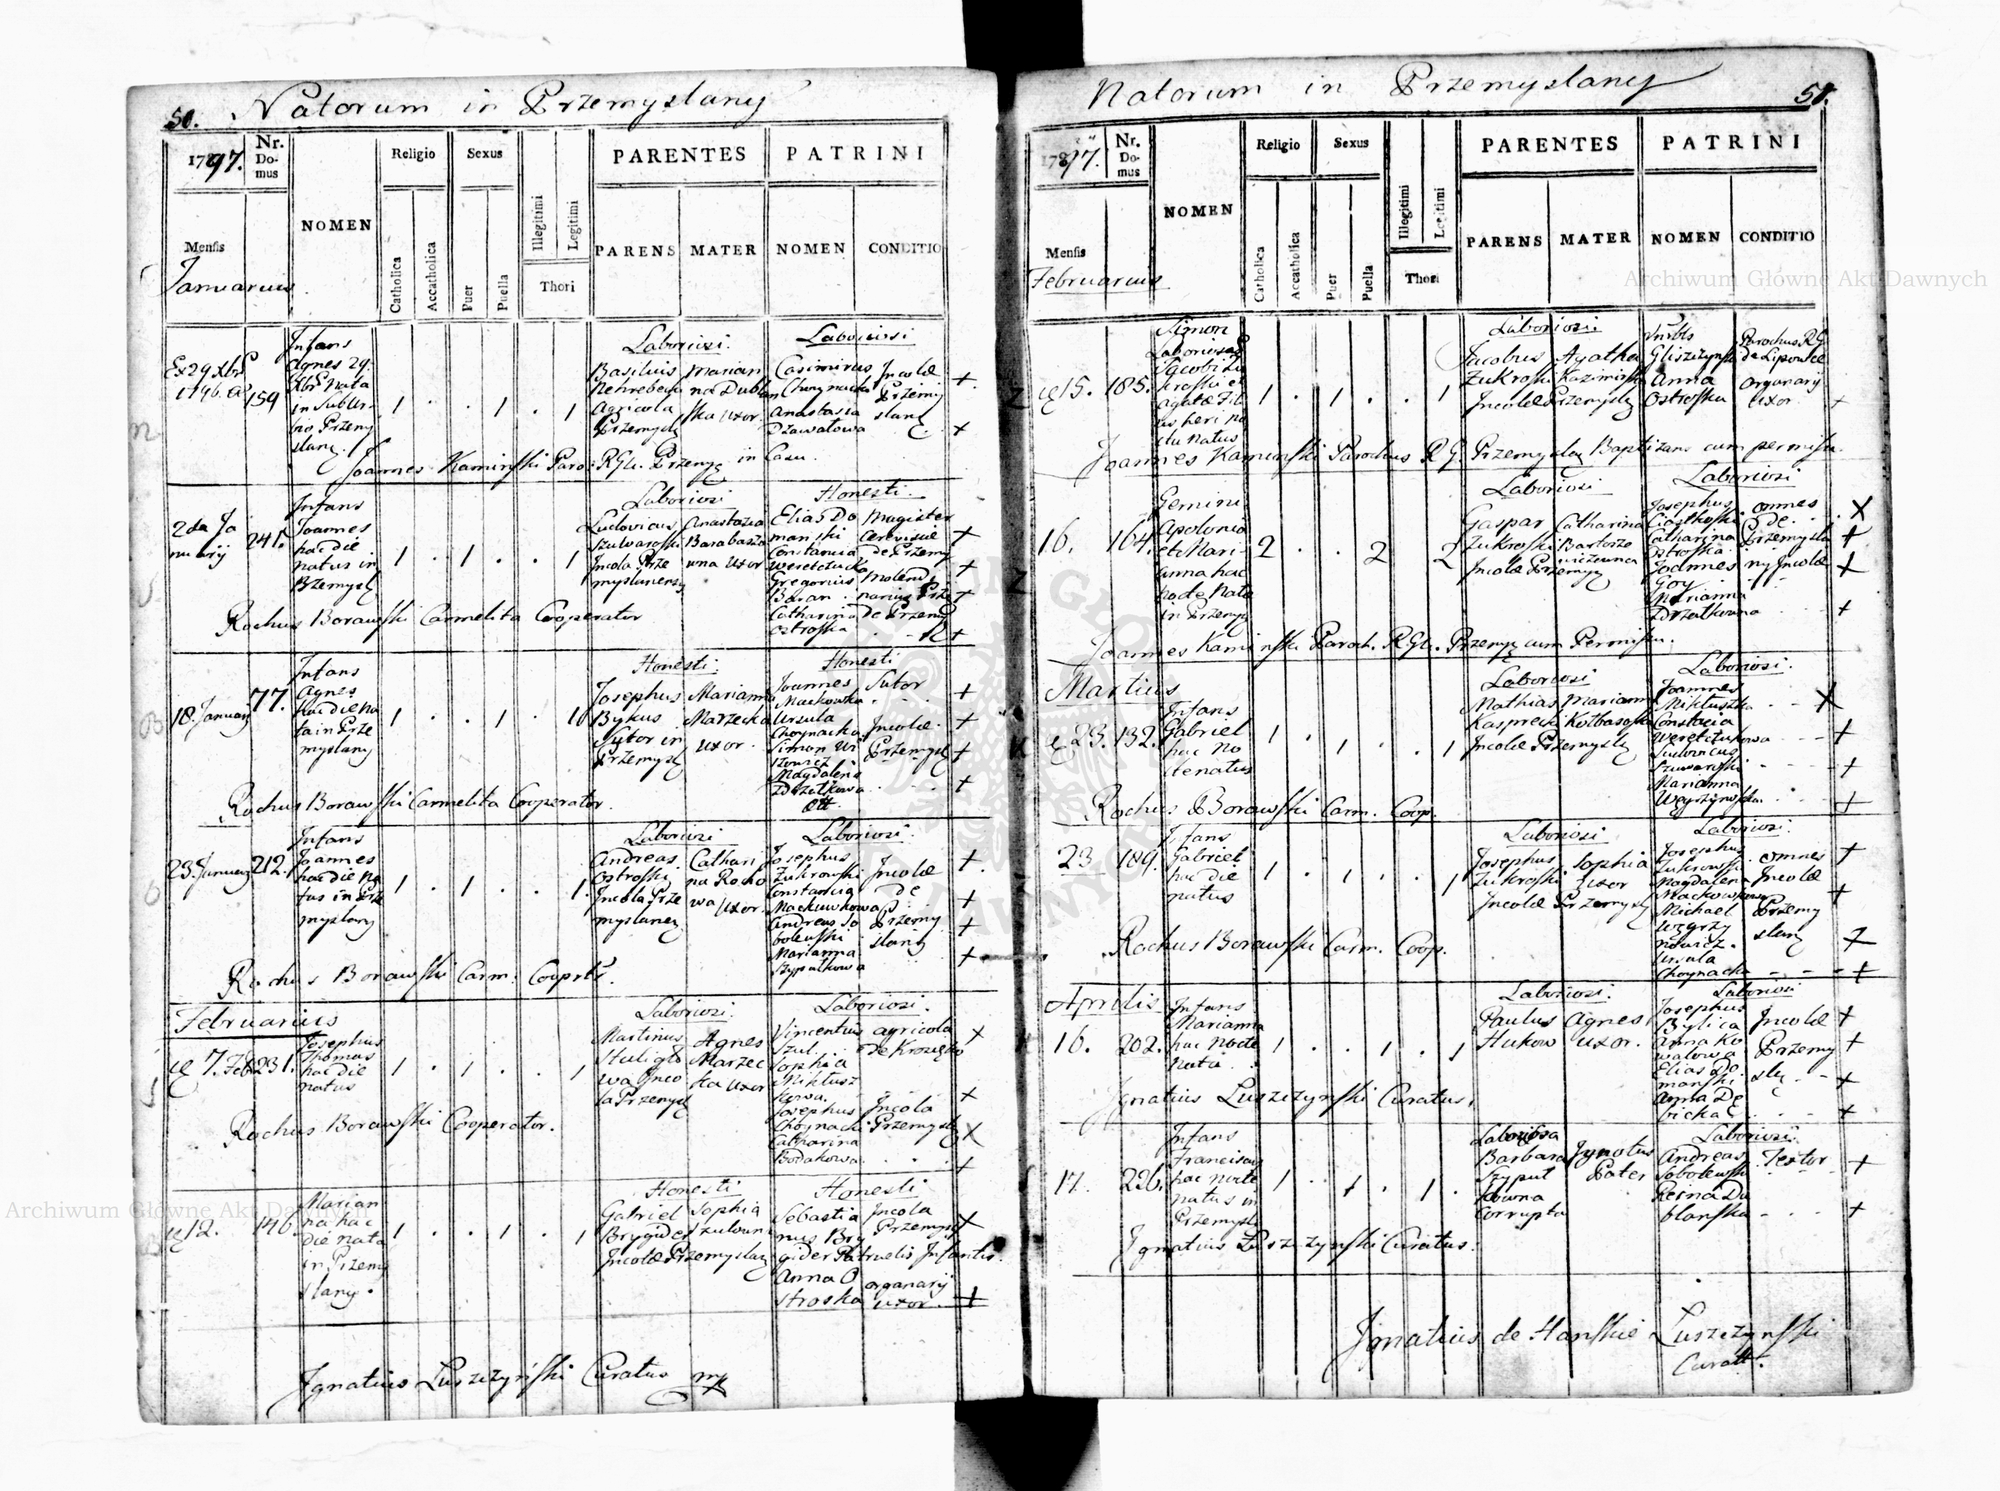 50. Natorum in Przemyslany
1797.
Nr. Domus
NOMEN
Religio
Sexus
PARENTES
PATRINI
Mensis
Januarius
Catholica
Accatholica
Puer
Puella
Illegitimi
Legitimi
Thori
PARENS
MATER
NOMEN
CONDITIO
Ex 29 Xbr
1796.
159
Infans
Agnes 29.
Xbr Nata
in Suburbio Przemy
slany.
1 . . 1 . 1
Laboriosi.
Basilius
Nehrebecki
Agricola
Przemysly
Marian
na Dublan
ska Uxor.
Laboriosi
Casimirus
Choynacki
Anastasia
Dzawalowa
Incolæ
Przemy
slany
+
+
Joannes Kaminski Paro: RGl. Przemy in Casu.
2da Ja
nuarij
241.
Infans
Joannes
hac die
natus in
Przemysly
1 . 1 . . 1
Laboriosi
Ludovicus
Szuwarski
Incola Prze
myslanensy
Anastazia
Barabasza
wna Uxor
Honesti.
Elias Do
manski
Constancia
Weretczucka
Gregorius
Baran
Catharina
Ostroska
Magister
Cerevisiæ
de Przemy
Molendi
narius Prze
de Przemy
+
+
+
+
Rochus Borawski Carmelita Cooperator
18. January
77.
Infans
Agnes
hac die Na
ta in Prze
myslany
1 . . 1 . 1
Honesti.
Josephus
Bykus
Sutor in
Przemysly
Marianna
Marzecka
Uxor.
Honesti
Joannes
Mackowka
Ursula
Choynacka
Simon Wi
szowicz
Magdalena
Zdrzatkowa
Sutor
Incolæ.
Przemysly
+
+
+
+
Rochus Borawski Carmelita Cooperator.
23. January
212.
Infans
Joannes
hac die Na
tus in Prze
myslany
1 . 1 . . 1.
Laboriosi
Andreas
Ostroski
Incola Prze
myslanez
Cathari
na Roko
wa Uxor.
Laboriosi.
Josephus
Zukrowski
Constancia
Mackuwkowa
Andreas So
bolewski
Marianna
Szypulkowa
Incolæ
de
Przemy
slany
+
+
+
+
Rochus Borawski Carm. Cooprts.
Februarius
7. Feb
231.
Josephus
Thomas
hac die
natus
1 . 1 . . 1
Laboriosi.
Martinus
Huliglo
wa Inco
la Przemysl
Agnes
Marzec
ka Uxor
Laboriosi.
Vincentius
Szul.
Sophia
Miktusz
kowa.
Josephus
Choynacki
Catharina
Bodakowa
agricola
Incola
Przemysly
+
+
X
+
Rochus Borawski Cooperator.
12.
146.
Marian
na hac
die nata
in Przemy
slany.
1 . . 1 . 1
Honesti
Gabriel
Brygider
Incolæ Przemyslany
Sophia
Honesti
Sebastia
nus Bry
gider Patruelis Infantis.
Anna O
stroska
Incola
Przemysly
organarij
Uxor.
X
+
Ignatius Luszczyński Curatus mp
Natorum in Przemyslany
51.
1797.
Nr. Domus
NOMEN
Religio
Sexus
PARENTES
PATRINI
Mensis
Februarius
Catholica
Accatholica
Puer
Puella
Illegitimi
Legitimi
Thori
PARENS
MATER
NOMEN
CONDITIO
15.
185.
Simon
Laboriosor
Jacobi Zu
kroski et
Agatæ Fili
us, heri no
ctu natus
1 . 1 . . 1
Laboriosi.
Jacobus
Zukroski
Incolæ Przemysly
Agatha
Kazimirska
Gliszczynski
Anna
Ostroska
Parochus RG
de Lipowce
organarij
Uxor.
Joannes Kaminski Parochus R G. Przemysly Baptizans cum permissu.
16.
164.
Gemini
Apolonia
et Mari-
anna hac
nocte Nata
in Przemy
2 . . 2 2
Laboriosi
Gaspar
Zukroski
Incolæ Przemy
Catharina
Laboriosi
Josephus
Ciastkoski
Catharina
Ostroska
Joannes
Gory
Marianna
Zdrzatkowna
omnes
de
Przemysla
ny Incolæ
X
+
+
+
Joannes Kaminski Paroch. RGl. Przemy cum Permissu.
Martius
23.
132.
Infans
Gabriel
hac No
cte natus
1 . 1 . . 1
Laboriosi
Mathias
Kasprecki
Incolæ Przemysly
Mariann
Kolbasoska
Laboriosi.
Joannes
Miktuszka
Constacia
Weretczukowa
Ludovicus
Szuwarski
Marianna
Wegrzynoska
X
+
+
+
Rochus Borawski Carm. Coop.
23
189.
Infans
Gabriel
hac die
natus
1 . 1 . . 1
Laboriosi.
Josephus
Zukroski
Incolæ Przemysly
Sophia
Uxor
Laboriosi.
Josephus
Zukrowski
Magdalena
Mackowkowa
Michael
Wegrzy
nowicz.
Ursula
Choynacka
omnes
Incolæ
Przemy
slany
+
+
+
+
Rochus Borawski Carm. Coop.
Aprilis
16.
202.
Infans
Marianna
hac Nocte
Nata
1 . . 1 . 1
Laboriosi.
Paulus
Hukow
Agnes,
Uxor.
Laboriosi
Josephus
Bylica
Anna Ko
walowa
Elias Do
manski
Anna De
bicka
Incolæ
Przemy
sly
+
+
+
+
Ignatius Luszczynski Curatus.
17.
226.
Infans
Franciscus
hac nocte
natus in
Przemysly
1 . 1 . 1 .
Laboriosa
Barbara
Szyput
kowna
Corrupta
Ignotus
Pater
Laboriosi.
Andreas
Sobolewski
Reina Du
blanska
Textor
+
+
Ignatius Luszczynski Curatus.
Ignatius de Hanskie Luszczynski
Curatt.
Archiwum Główne Akt Dawnych
Archiwum Główne Akt Dawnych